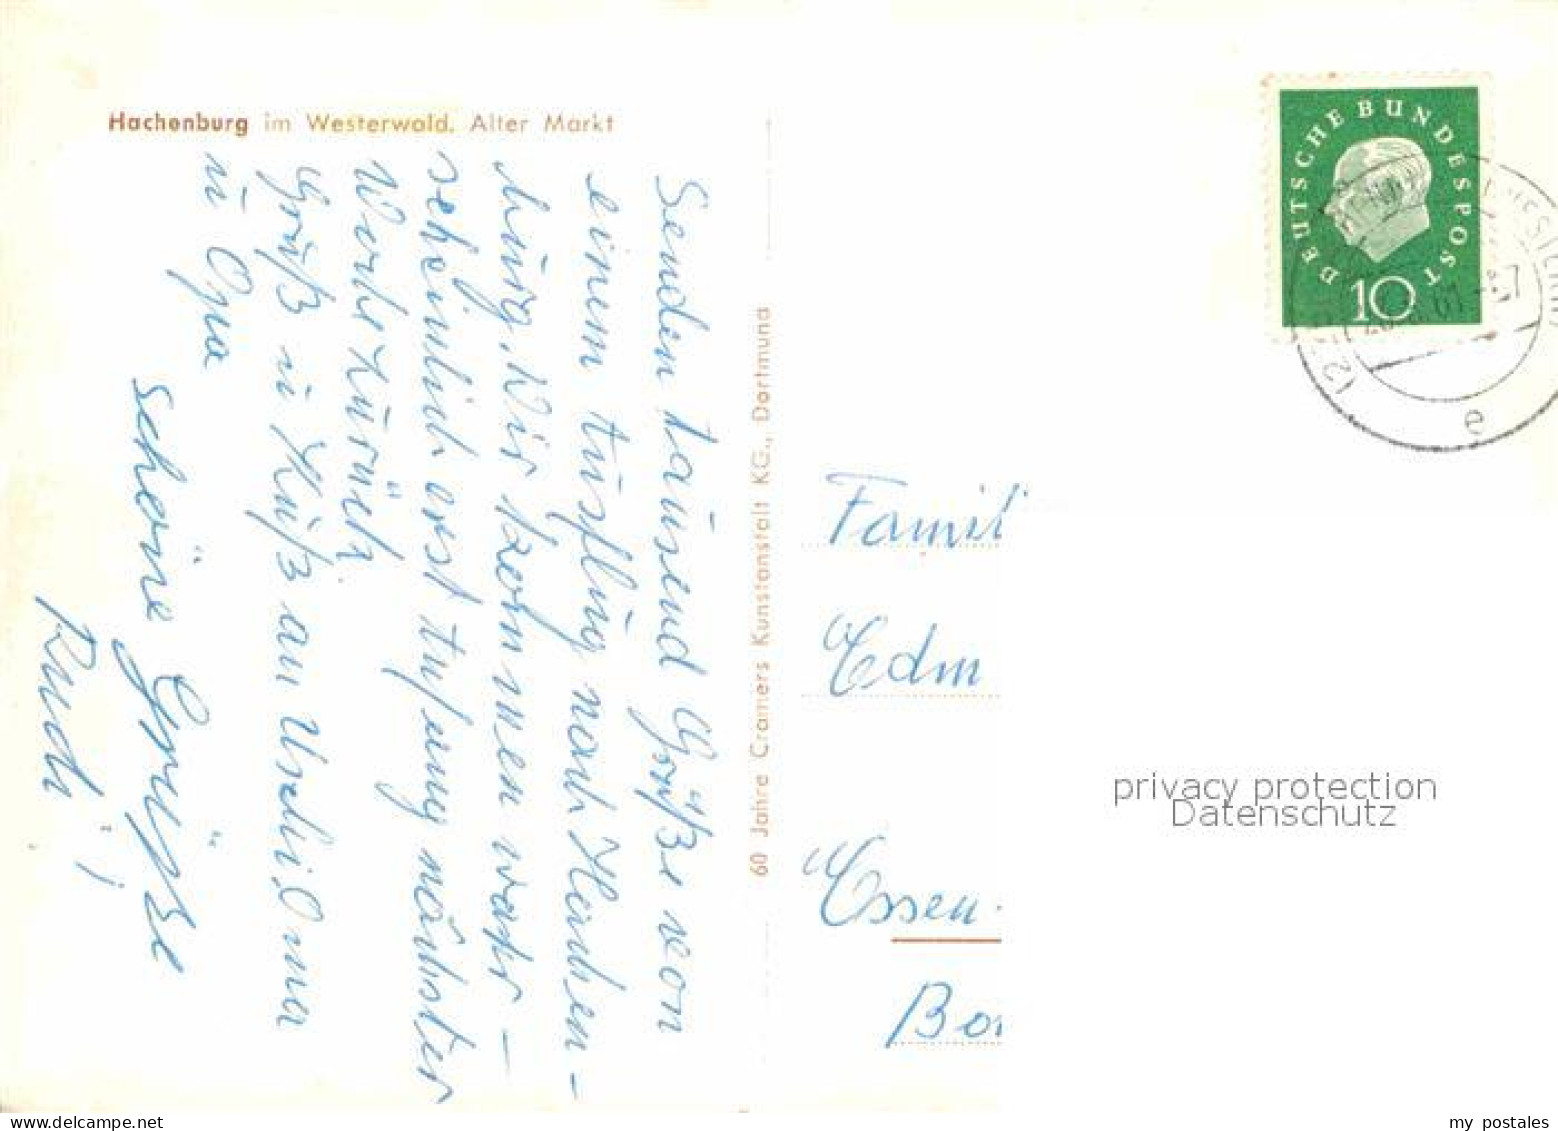 Hachenburg im Westerwald. Alter Markt
Senden tausend Grüße von
einem Ausflug nach Hachen-
burg. Wir kommen wahr-
scheinlich erst Anfang nächster
Woche zurück.
Gruß u. Kuß an Uschi, Oma
u Opa
schöne Grüße
Rudi
60 Jahre Cramers Kunstanstalt KG., Dortmund
DEUTSCHE BUNDESPOST
10
e
Famil
Edm
Essen-
Bor
privacy protection
Datenschutz
my postales